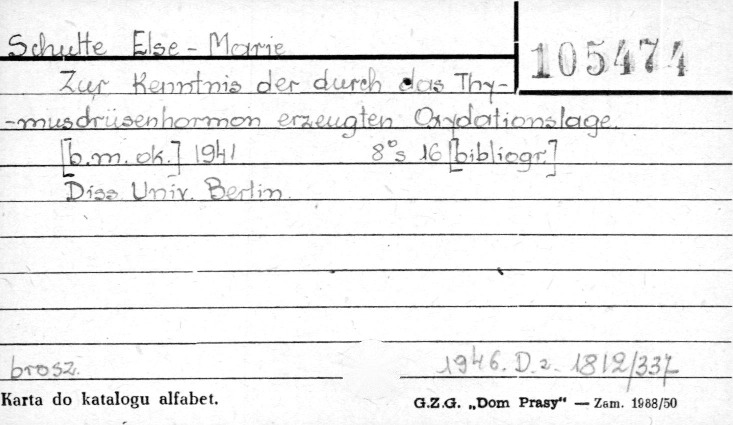 Schulte Else-Marie
105474
Zur Kenntnis der durch das Thy-
-musdrüsenhormon erzeugten Oxydationslage.
[b.m. ok.] 1941 8° s 16 [bibliogr.]
Diss Univ. Berlin.
brosz. 1946. D.z. 1812/337
Karta do katalogu alfabet. G.Z.G. „Dom Prasy" — Zam. 1988/50